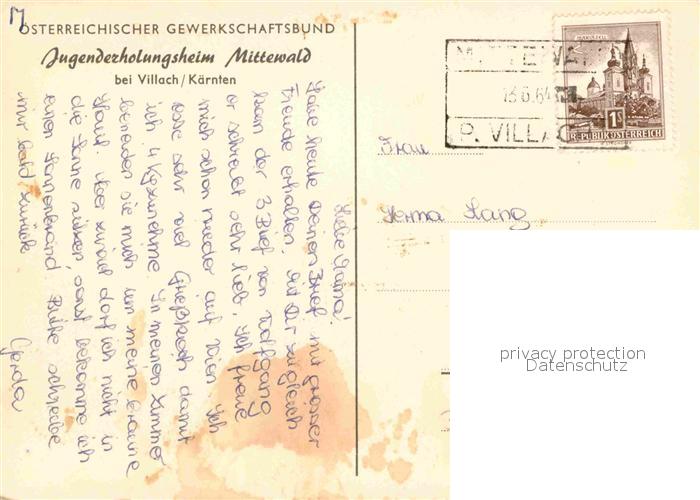 M
ÖSTERREICHISCHER GEWERKSCHAFTSBUND
Jugenderholungsheim Mittewald
bei Villach/Kärnten
Liebe Mama!
Habe heute Deinen Brief mit grosser
Freude erhalten, mit Dir zugleich
kam der 3 Brief von Wolfgang
er schreibt sehr lieb, ich freue
mich schon wieder auf Wien. Ich
esse sehr viel Grießkoch damit
ich 4 Kg zunehme. In meinem Zimmer
beneiden sie mich um meine braune
Haut. Aber zuviel darf ich nicht in
die Sonne sitzen, sonst bekomme ich
einen Sonnenbrand. Bitte schreibe
mir bald zurück
Gerda
MITTEWALD
13.6.64
P. VILLACH
MARIAZELL
1S
REPUBLIK ÖSTERREICH
Frau
Herma Lang
privacy protection
Datenschutz